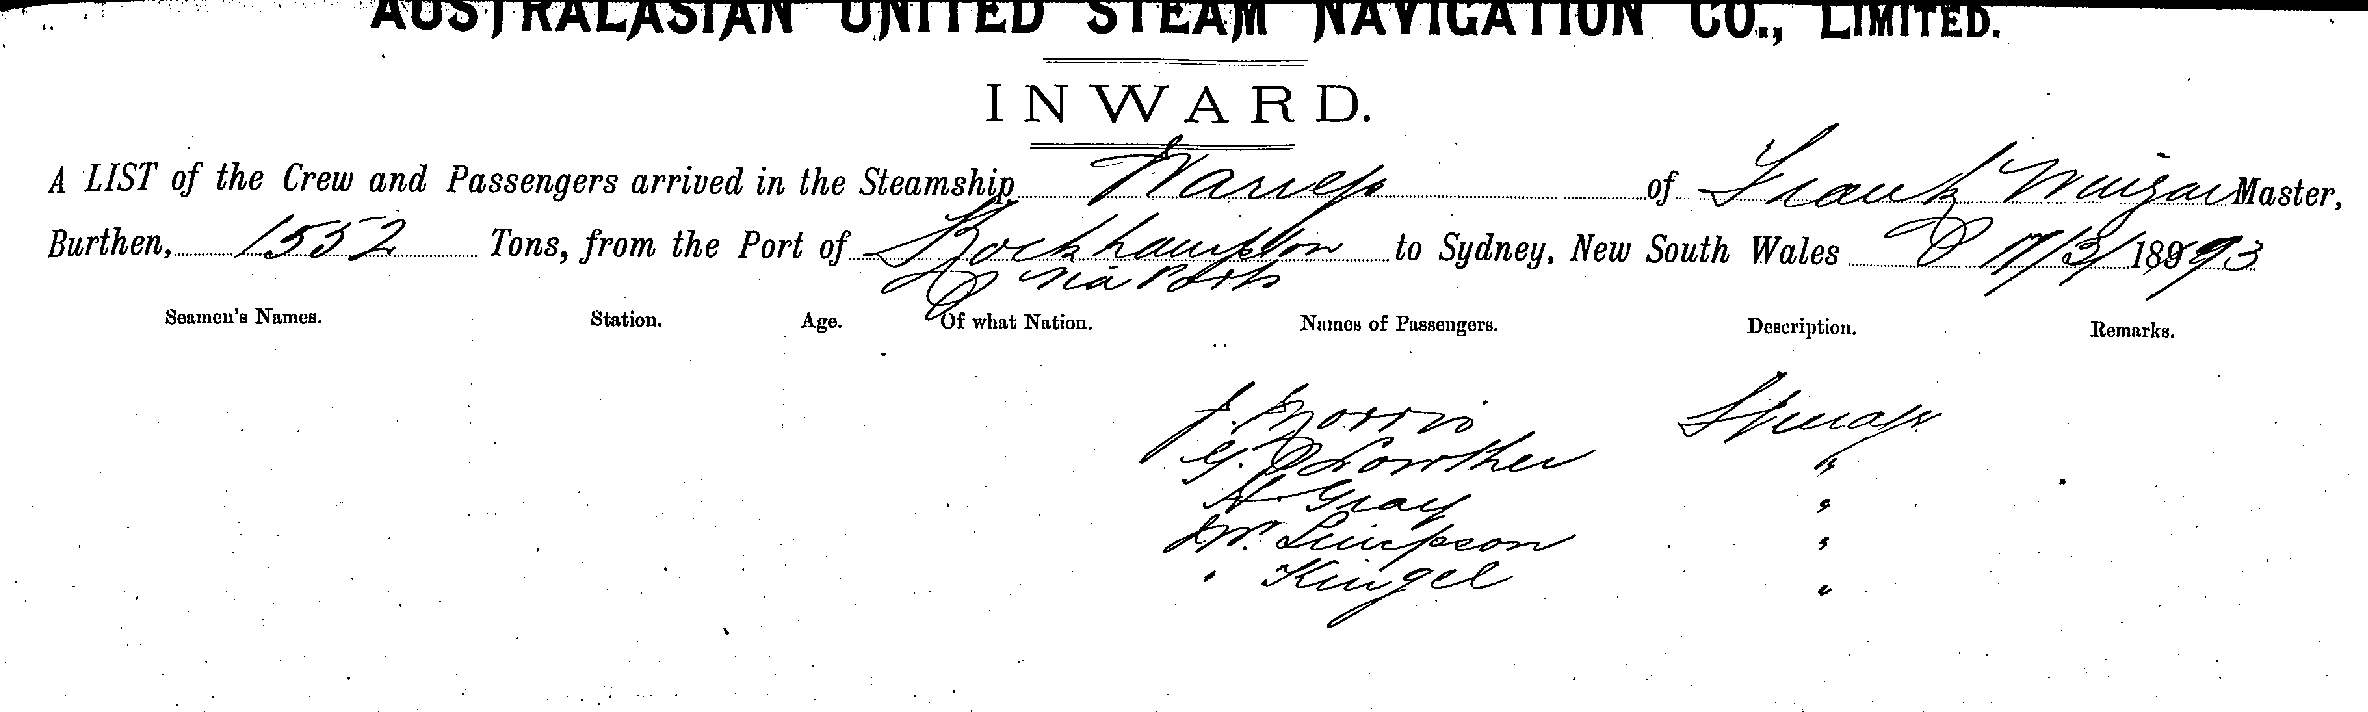 AUSTRALASIAN UNITED STEAM NAVIGATION CO., LIMITED.
INWARD.
A LIST of the Crew and Passengers arrived in the Steamship Warrego of Frank Master,
Burthen, 1552 Tons, from the Port of Rockhampton to Sydney, New South Wales 17/3/1893
via Ports
Seamen's Names. Station. Age. Of what Nation. Names of Passengers. Description. Remarks.
J. Morris Steerage
G. Lowther "
H Gray "
Mr. Simpson "
" Kingel "